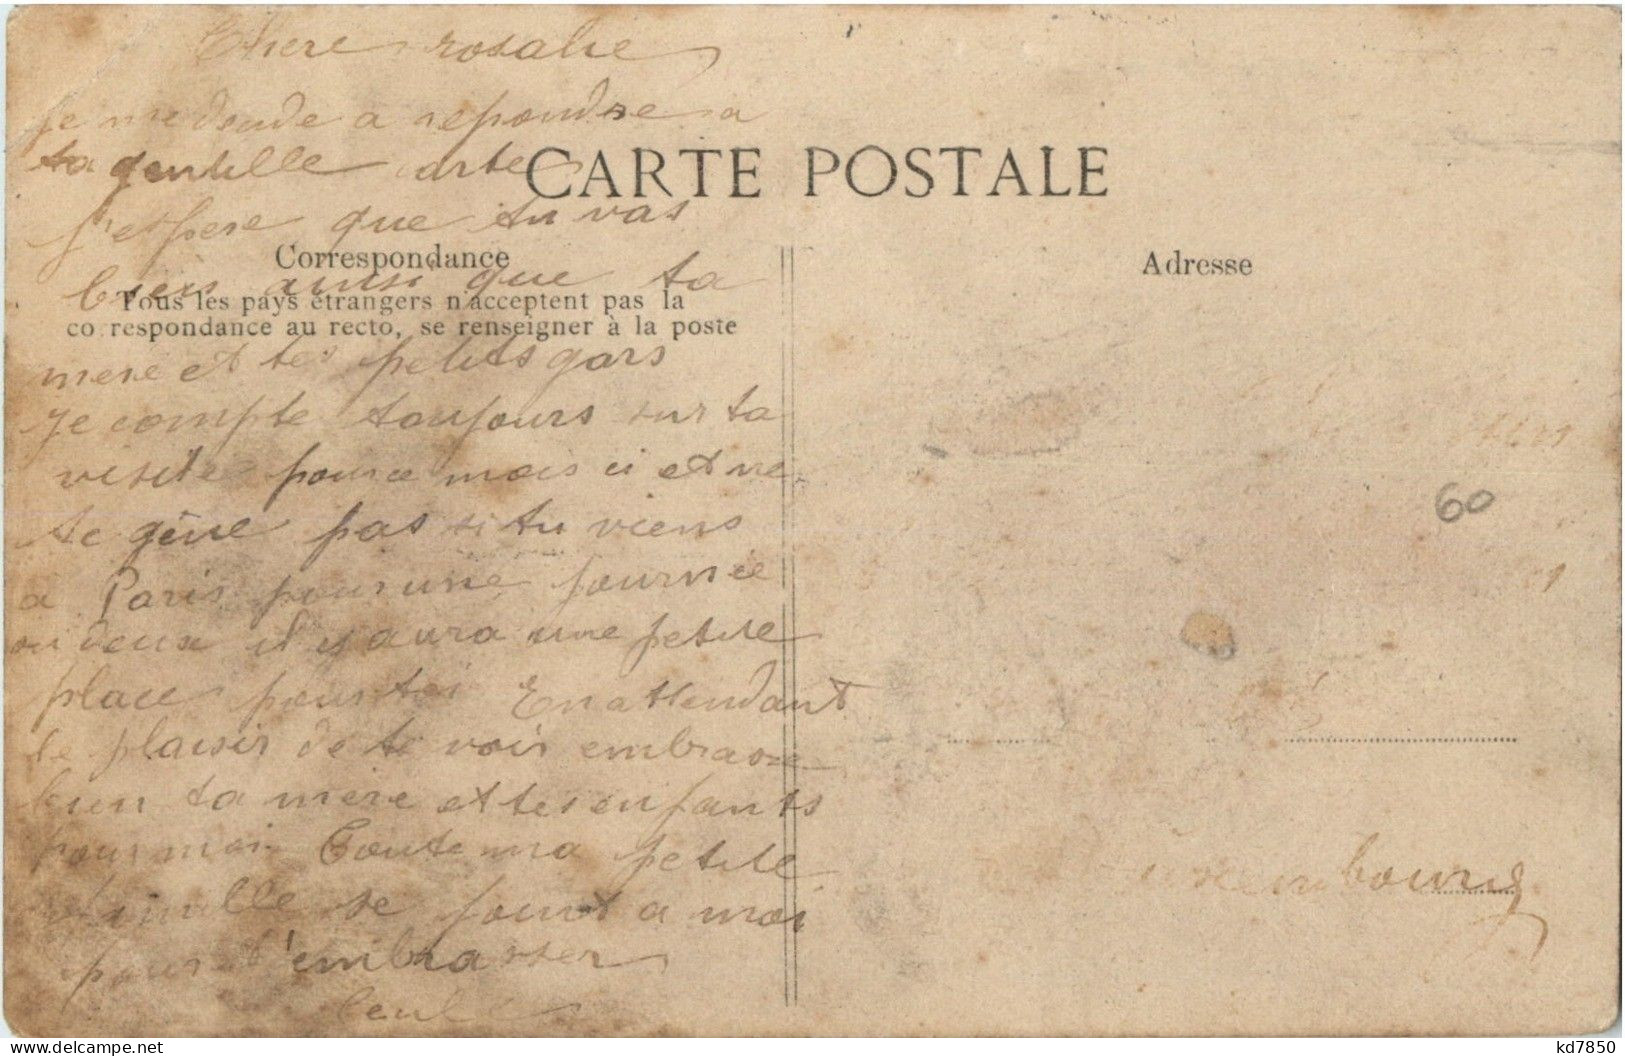 Chere rosalie
je me deside a repondre a
ta gentille carte
CARTE POSTALE
j'espere que tu vas
Correspondance
Adresse
bien ainsi que ta
Tous les pays étrangers n'acceptent pas la
co respondance au recto, se renseigner à la poste
mere et tes petits gars
je compte toujours sur ta
visite pour ce mois ci et ne
60
te gêne pas si tu viens
a Paris pour une journee
ou deux il y aura une petite
place pour toi En attendant
le plaisir de te voir embrasse
bien ta mère et tes enfants
pour moi Toute ma petite
famille se joint a moi
pour t'embrasser